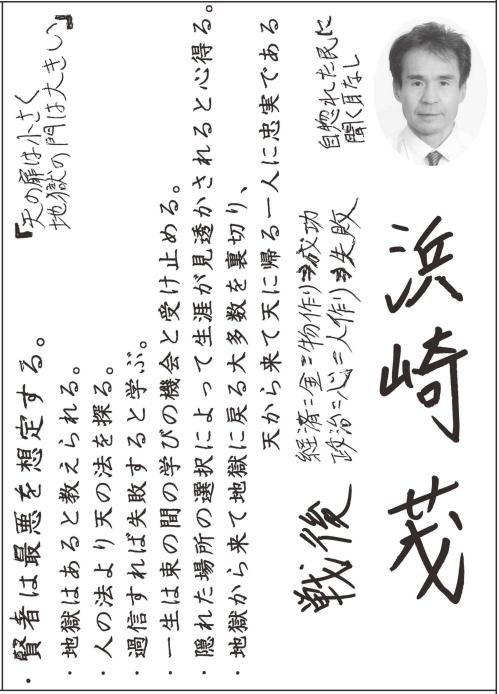 『天の扉は小さく
地獄の門は大きい』
・賢者は最悪を想定する。
・地獄はあると教えられる。
・人の法より天の法を探る。
・過信すれば失敗すると学ぶ。
・一生は束の間の学びの機会と受け止める。
・隠れた場所の選択によって生涯が見透かされると心得る。
・地獄から来て地獄に戻る大多数を裏切り、
天から来て天に帰る一人に忠実である
戦後
経済=金=物作り⇒成功
政治=心=人作り⇒失敗
自惚れた民に
聞く耳なし
浜崎茂